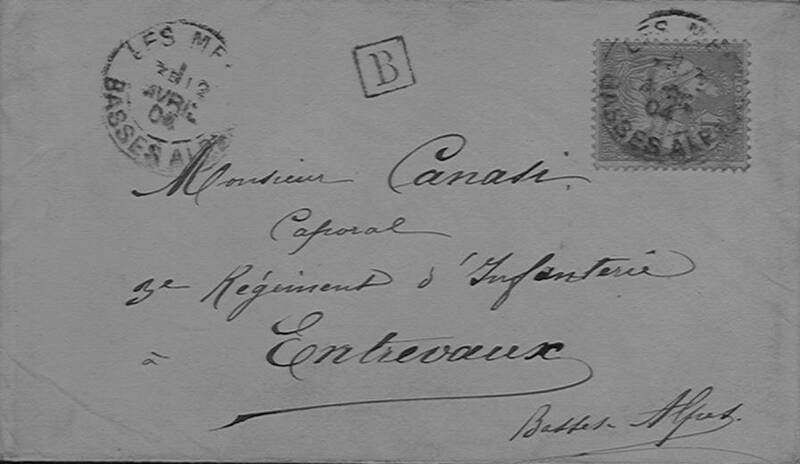 LES ME
1
AVRIL
04
BASSES AL
B
LES ME
04
BASSES ALP
Monsieur Canasi.
Caporal
3e Régiment d'Infanterie
à Entrevaux
Basses-Alpes.